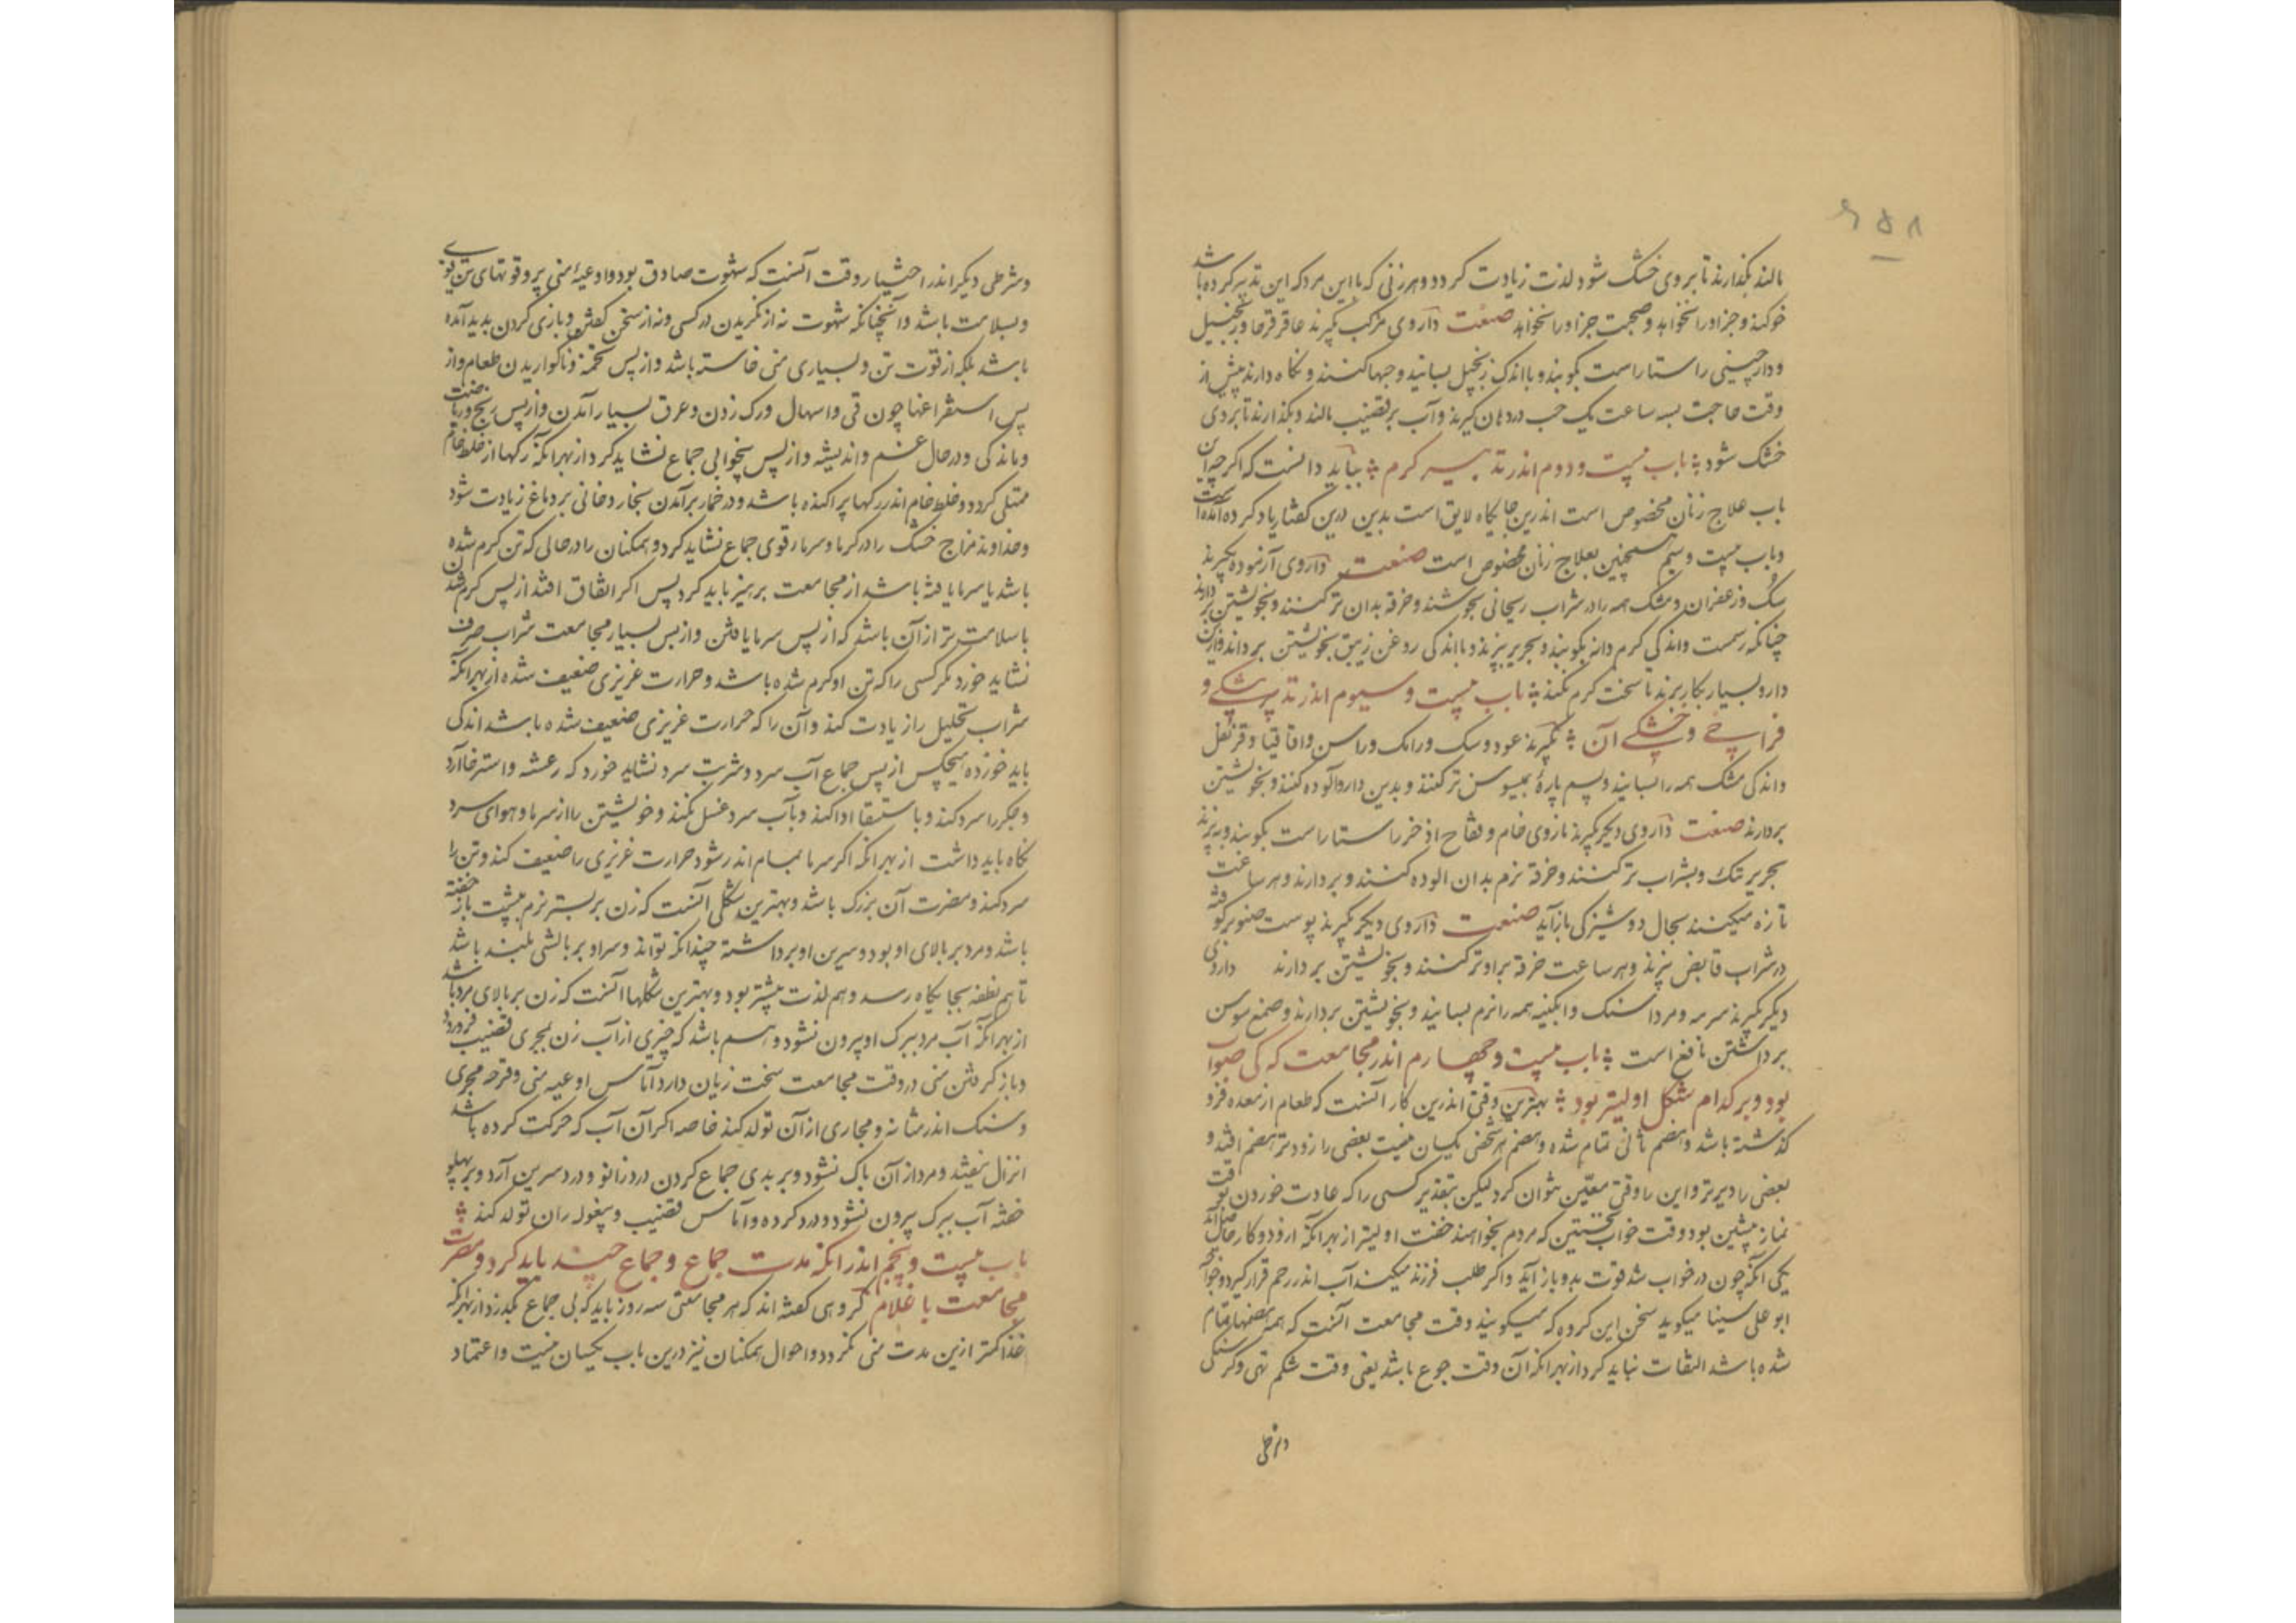 ۶۵۸
مالند بگذارند تا بروی خشک شود لذت زیادت کردد و هر زنی که با این مرد که این تدبیر کرده باشد
خو کند و جز او را نخواهد و صحبت جز او را نخواهد صفت داروی مرکب بگیرند عاقرقرحا و زنجبیل
و دارچینی راستاراست بکوبند و با اندک زنجبیل بسایند و حبها کنند و نکاه دارند پیش از
وقت حاجت بسه ساعت یک حب در دهان گیرند و آب بر قضیب مالند و بگذارند تا بروی
خشک شود باب بیست و دوم اندر تدبیر گرم بباید دانست که اگر چه این
باب علاج زنان مخصوص است اندرین جایکاه لایق است بدین درین گفتار یاد کرده آمده است
و باب بیست و سیم همچنین بعلاج زنان مخصوص است صفت داروی آزموده بگیرند
سک و زعفران و مشک همه را در شراب ریحانی بجوشند و خرقه بدان تر کنند و بخویشتن بردارند
چنانکه رسمست و اندکی کرم دانه بکوبند و بحریر ببزند و با اندکی روغن زیبق بخویشتن بردارند و این
دارو بسیار بکار برند تا سخت گرم نکند باب بیست و سیوم اندر تدبیر تنکی و
فراخی و خشکی آن بگیرند عود و سک و رامک و راسن و اقاقیا و قرنفل
و اندکی مشک همه را بسایند و پشم پارهٔ بمیسوسن تر کنند و بدین دارو آلوده کنند و بخویشتن
بردارند صفت داروی دیگر بگیرند مازوی خام و فقاح اذخر راستاراست بکوبند و ببزند
بحریر تنک و بشراب تر کنند و خرقه نرم بدان الوده کنند و بردارند و هر ساعت
تازه میکنند بحال دوشیزگی بازآید صفت داروی دیگر بگیرند پوست صنوبر کوفته
در شراب قابض بپزند و هر ساعت خرقه برا و تر کنند و بخویشتن بردارند داروی
دیگر بگیرند سرمه و مرداسنک و ابکینه همه را نرم بسایند و بخویشتن بردارند و صمغ سوسن
برداشتن نافع است باب بیست و چهارم اندر مجامعت که کی صواب
بود و بر کدام شکل اولیتر بود بهترین وقتی اندرین کار آنست که طعام از معده فرو
گذشته باشد و هضم ثانی تمام شده و هضم هر شخصی یکسان نیست بعضی را زودتر هضم افتد و
بعضی را دیرتر و این را وقتی معین نتوان کرد لیکن بتقدیر کسی را که عادت خوردن بوقت
نماز پیشین بود وقت خواب نخستین که مردم بخواهند خفت اولیتر از بهرانکه ازو دو کار حاصل آید
یکی آنکه چون در خواب شد قوت بدو باز آید و اکر طلب فرزند میکند آب اندر رحم قرار گیرد و خواجه
ابو علی سینا میکوید سخن این کروه که میکویند وقت مجامعت آنست که همه هضمها تمام
شده باشد التفات نباید کرد از بهرانکه آن وقت جوع باشد یعنی وقت شکم تهی و گرسنگی
و شرطی
و شرطی دیگر اندر اختیار وقت آنست که شهوت صادق بود و اوعیهٔ منی پر و قوتهای تن قوی
و بسلامت باشد و آنچنانکه شهوت نه از نکریدن در کسی و نه از سخن گفتن و بازی کردن پدید آمده
باشد بلکه از قوت تن و بسیاری منی خاسته باشد و از پس تخمه و ناکواریدن طعام و از
پس استفراغها چون قی و اسهال و رک زدن و عرق بسیار آمدن و از پس رنج و ریاضت
و ماندکی و در حال غم و اندیشه و از پس بیخوابی جماع نشاید کرد از بهرانکه رکها از خلط خام
ممتلی کردد و خلط خام اندر رکها پراکنده باشد و در خمار برآمدن بخار دخانی بر دماغ زیادت شود
و خداوند مزاج خشک را در گرما و سرما قوی جماع نشاید کرد و همکنان را در حالی که تن گرم شده
باشد یا سرما یافته باشد از مجامعت پرهیز باید کرد پس اگر اتفاق افتد از پس گرم شدن
با سلامت تر از آن باشد که از پس سرما یافتن و از پس بسیار مجامعت شراب صرف
نشاید خورد مکر کسی را که تن او گرم شده باشد و حرارت غریزی ضعیف شده از بهرانکه
شراب تحلیل را زیادت کند و آن را که حرارت غریزی ضعیف شده باشد اندکی
باید خورد و هیچکس از پس جماع آب سرد و شربت سرد نشاید خورد که رعشه و استرخا آرد
و جکر را سرد کند و باستسقا ادا کند و بآب سرد غسل نکند و خویشتن را از سرما و هوای سرد
نکاه باید داشت از بهرانکه اکر سرما بمسام اندر شود حرارت غریزی را ضعیف کند و تن را
سرد کند و مضرت آن بزرک باشد و بهترین شکلی آنست که زن بر بستر نرم بپشت باز خفته
باشد و مرد بر بالای او بود و سرین او برداشته چندانکه تواند و سر او بر بالشی بلند باشد
تا هم نطفه بجایکاه رسد و هم لذت بیشتر بود و بدترین شکلها آنست که زن بر بالای مرد باشد
از بهرانکه آب مرد ببرک او بیرون نشود و بیم باشد که چیزی از آب زن بمجری قضیب فرو رود
و باز گرفتن منی در وقت مجامعت سخت زیان دارد آماس اوعیه منی و قرحه مجری
و سنک اندر مثانه و مجاری از آن تولد کند خاصه اکر آن آب که حرکت کرده باشد
انزال نیفتد و مرد از آن پاک نشود و بر بدی جماع کردن درد زانو و درد سرین آرد و بر پهلو
خفته آب ببرک بیرون نشود و درد کرده و آماس قضیب و بیغوله ران تولد کند
باب بیست و پنجم اندر انکه مدت جماع و جماع چند باید کرد و مضرت
مجامعت با غلام گروهی گفته اند که هر مجامعتی سه روز باید که بی جماع بگذرد از بهرانکه
غذا کمتر ازین مدت منی نکردد و احوال همکنان نیز درین باب یکسان نیست و اعتماد